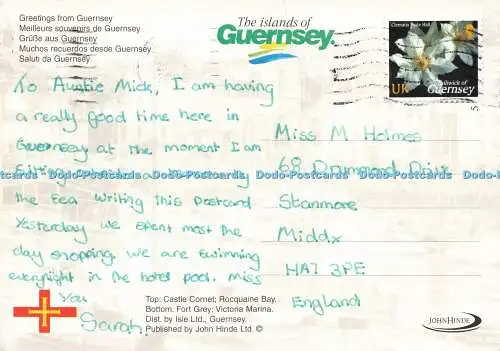 Greetings from Guernsey
Meilleurs souvenirs de Guernsey
Grüße aus Guernsey
Muchos recuerdos desde Guernsey
Saluti da Guernsey
The islands of
Guernsey.
Clematis Rosie Hall
Bailiwick of
UK Guernsey
To Auntie Mick, I am having
a really good time here in
Guernsey at the moment I am
sitting by
the sea writing this postcard
Yesterday we spent most the
day shopping. we are swimming
everynight in the hotel pool. miss
You
Sarah.
Miss M Holmes
68 Drummond Drive
Stanmore
Middx
HA7 3PE
England
Dodo-Postcards Dodo-Postcards Dodo-Postcards Dodo-Postcards
Top: Castle Cornet; Rocquaine Bay.
Bottom. Fort Grey; Victoria Marina.
Dist. by Isle Ltd., Guernsey.
Published by John Hinde Ltd. ©
JOHN HINDE